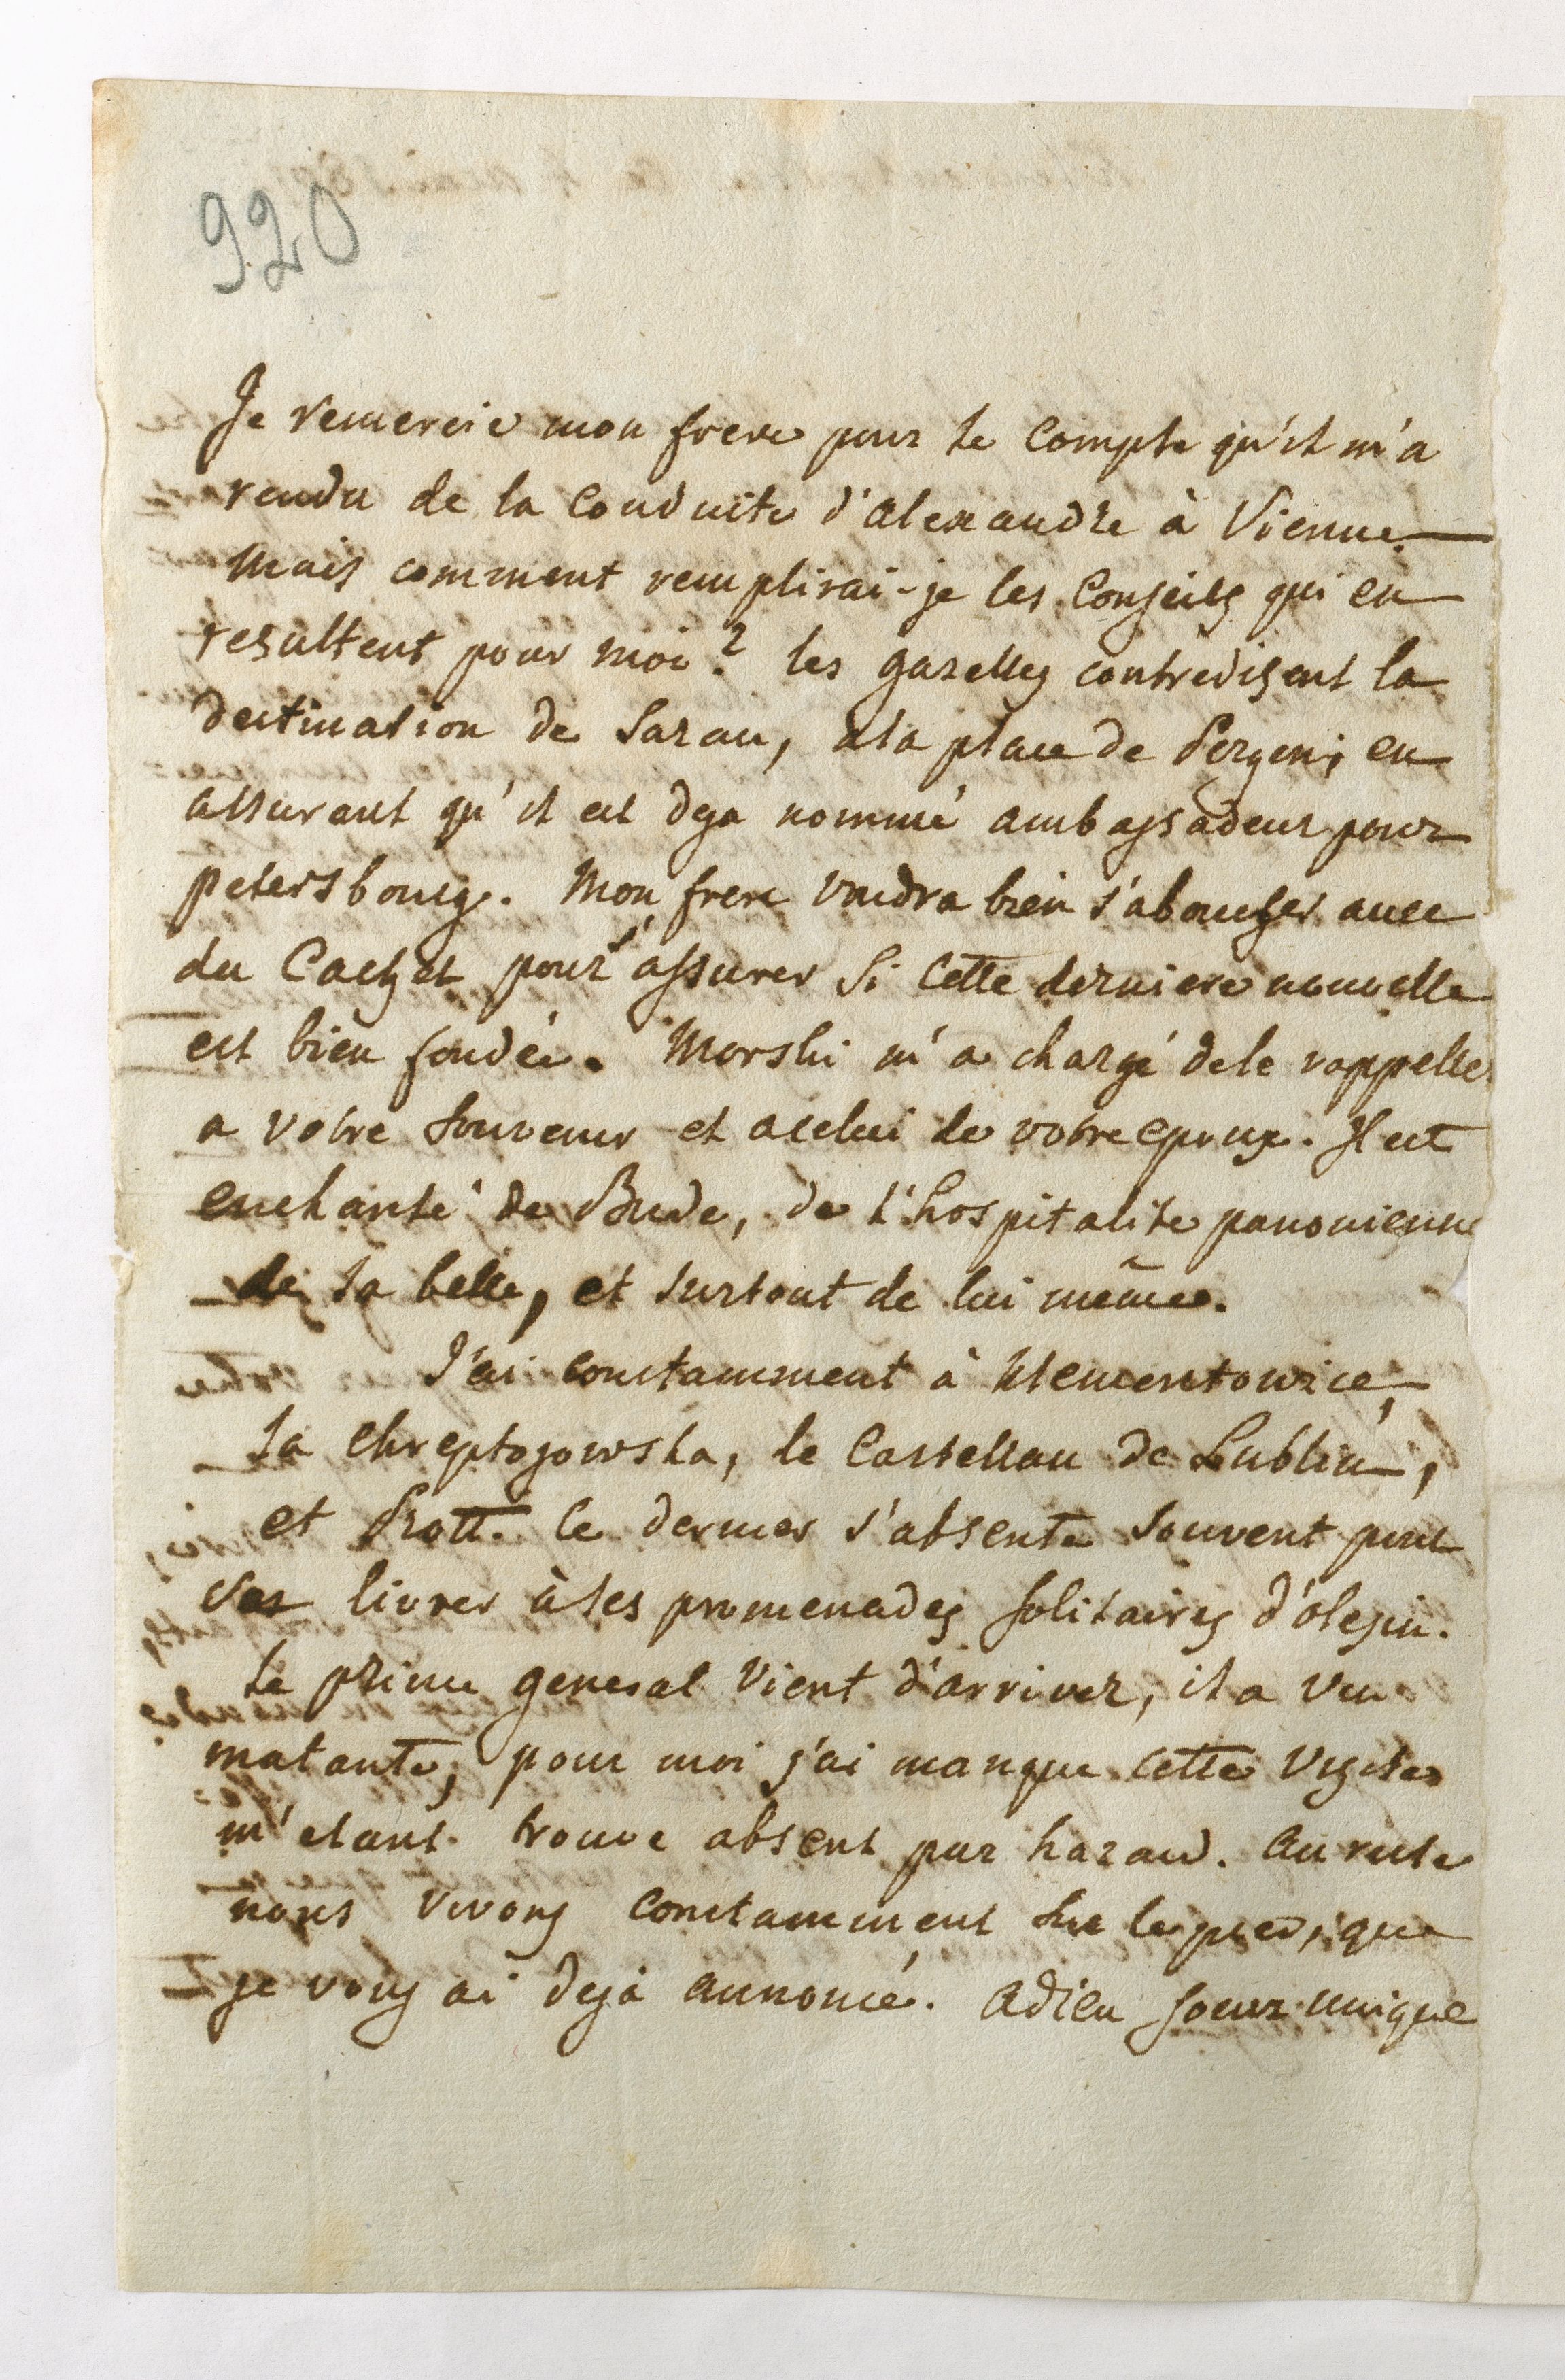 920
Je remercie mon frere pour le Compte qu'il m'a
rendu de la Conduite d'alexandre à Vienne.—
Mais comment remplirai-je les Conseils qui en
resultent pour moi? les gazettes contredisent la
destination de Sarau, a la place de Pergen, en
assurant qu'il est deja nommé ambassadeur pour
petersbourg. Mon frere voudra bien s'aboucher avec
du Cachet pour s'assurer si cette derniere nouvelle
est bien fondée. Morski m'a chargé de le rappeller
a votre souvenir et a celui de votre epoux. Il est
enchanté de Bude, de l'hospitalite panonienne
de sa belle, et surtout de lui même.
J'ai constamment à Klementowice,
la Chreptojowska, le Castellan de Lublin,
et Prott. Ce dernier s'absente souvent pour
se livrer à ses promenades solitaires d'olesin.
Le prince general vient d'arriver, il a vu
matante, pour moi j'ai manque cette visite
m'etant trouve absent par hazard. Au reste
nous vivons constamment sur le pied, que
je vous ai deja annoncé. adieu soeur unique